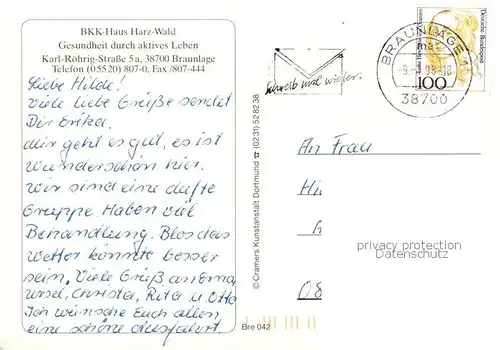 BKK-Haus Harz-Wald
Gesundheit durch aktives Leben
Karl-Röhrig-Straße 5a, 38700 Braunlage
Telefon (05520) 807-0, Fax /807-444
Liebe Hilde!
Viele liebe Grüße sendet
Dir Erika.
Mir geht es gut, es ist
wunderschön hier.
Wir sind eine dufte
Gruppe Haben viel
Behandlung. Blos das
Wetter könnte besser
sein. Viele Grüß an Erna,
Ursel, Christa, Rita u Otto
Ich wünsche Euch allen,
eine schöne Ausfahrt.
© Cramers Kunstanstalt Dortmund ☎ (0231) 528238
Bre 042
Schreib mal wieder.
BRAUNLAGE 1
38700
Deutsche Bundespost
100
An Frau
Hi
08
privacy protection
Datenschutz